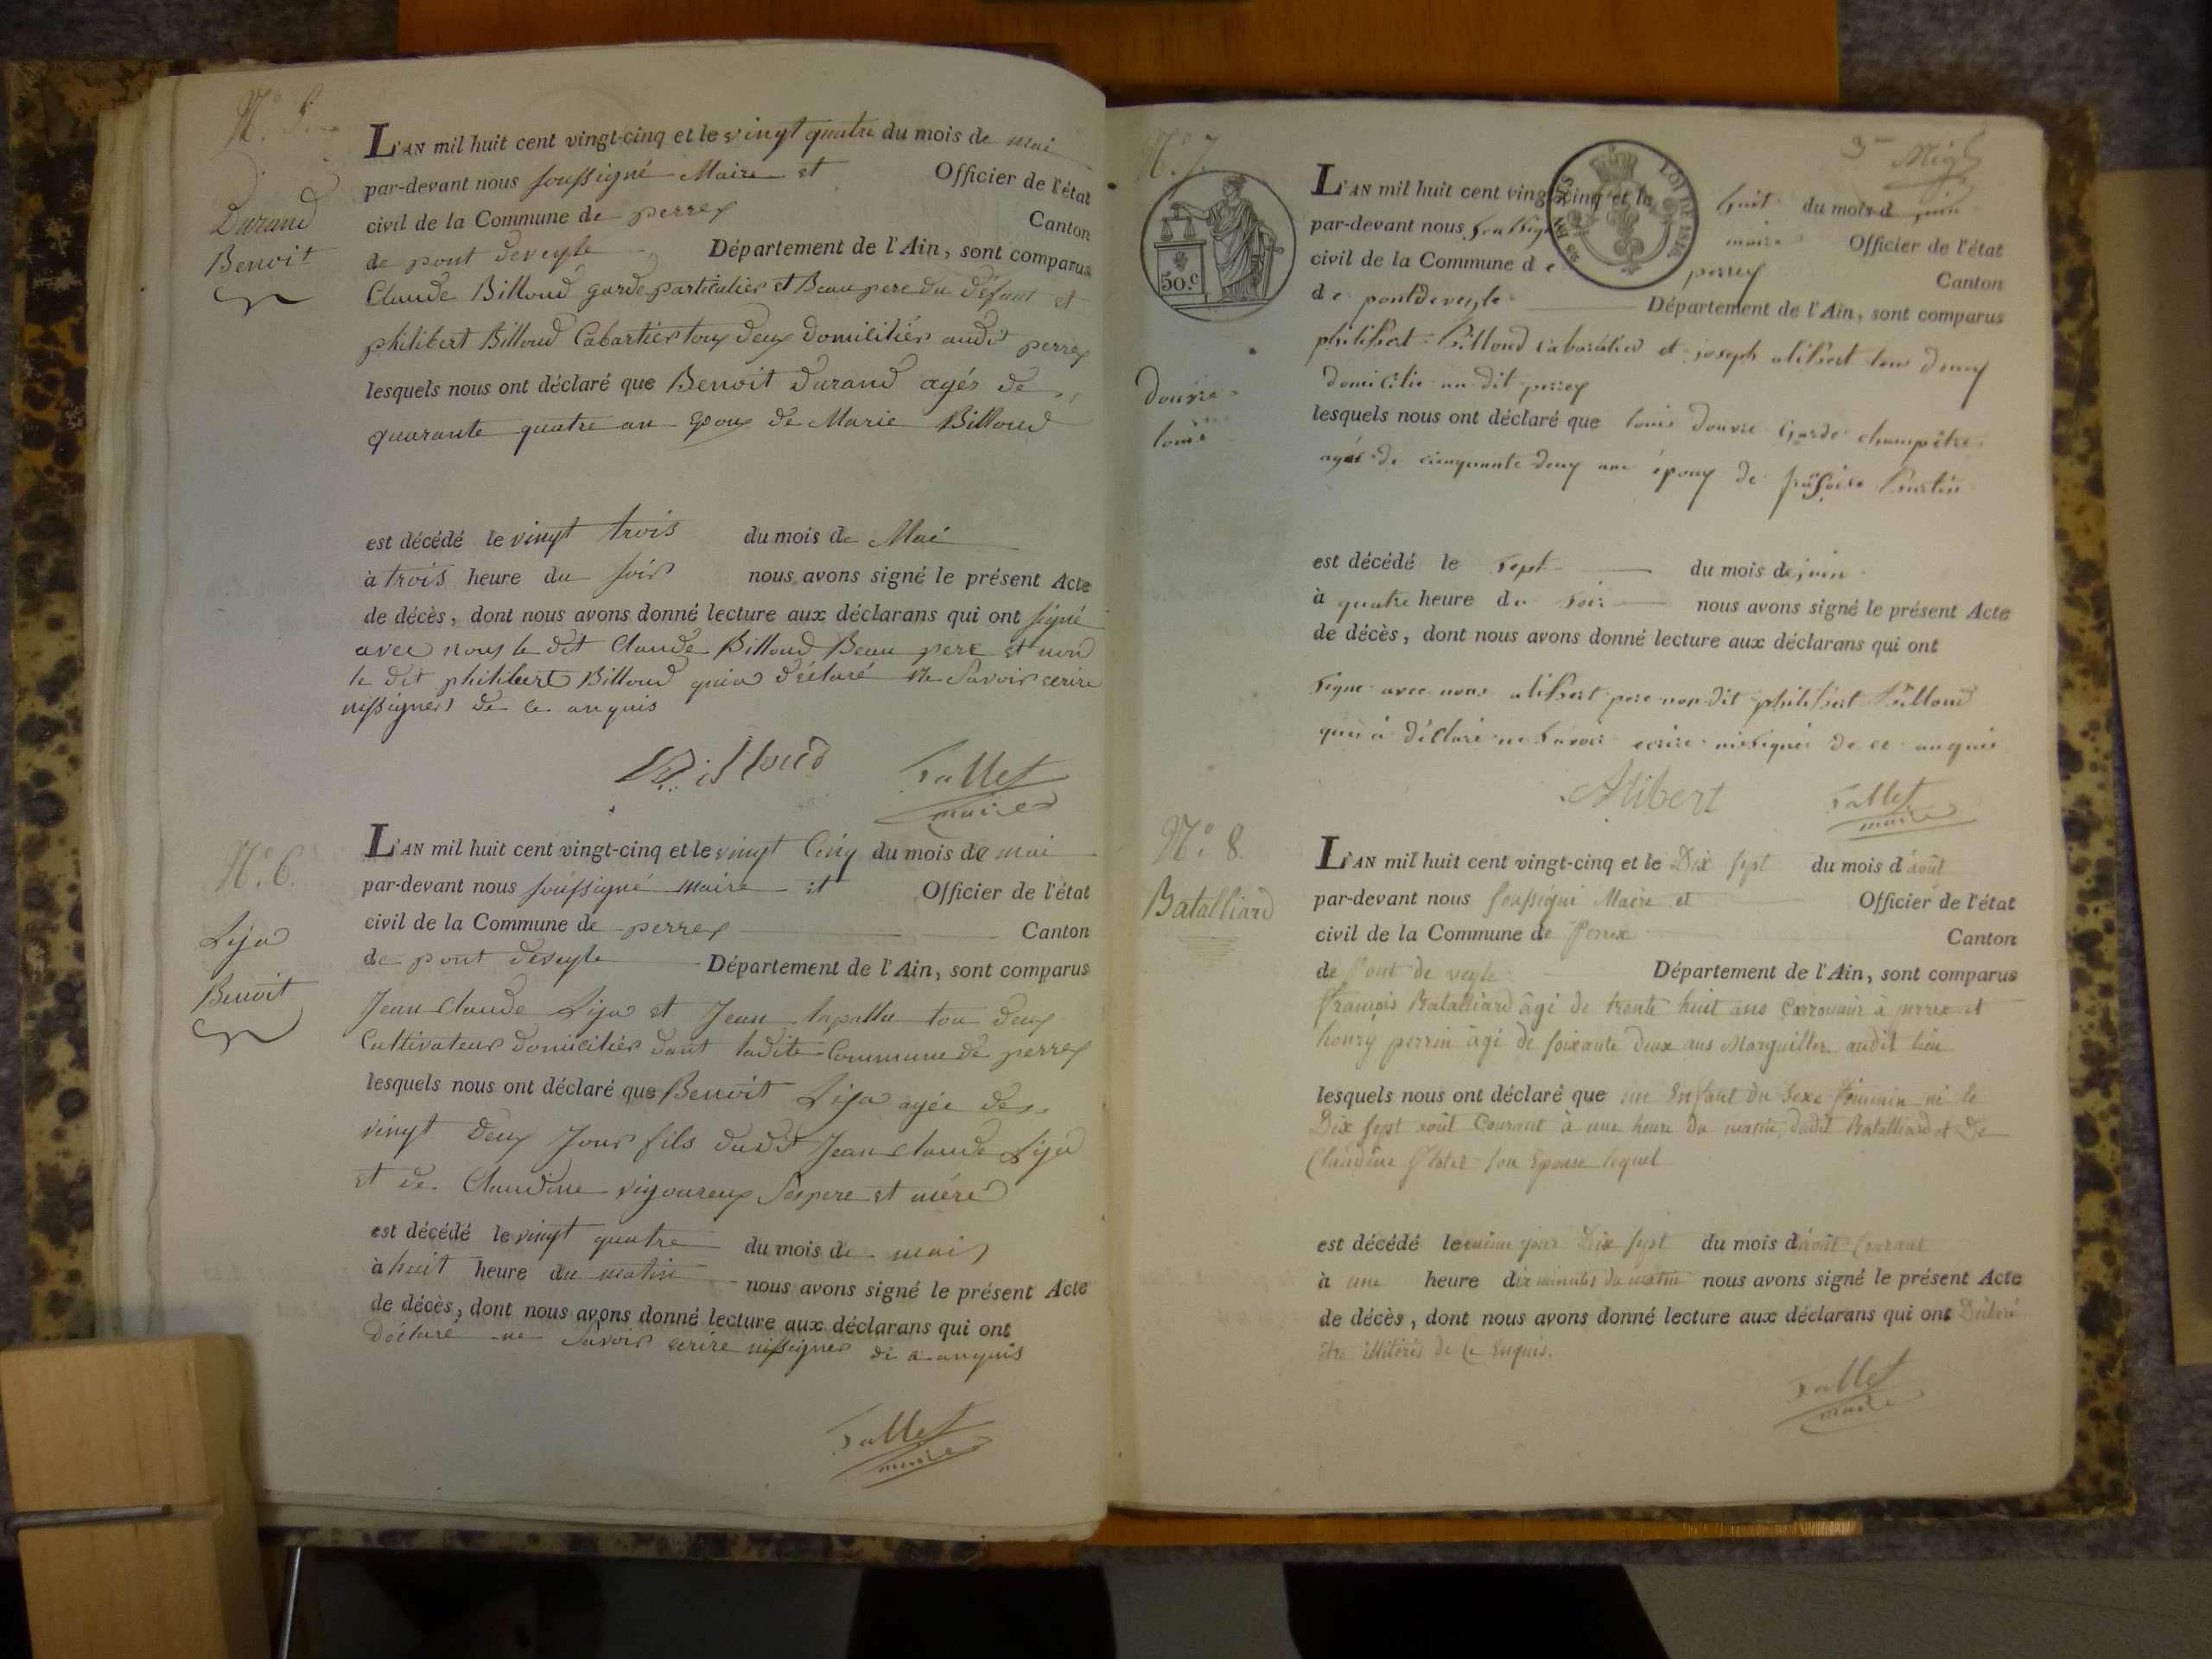 N.° 5.
Durand
Benoit
L'AN mil huit cent vingt-cinq et le vingt quatre du mois de mai
par-devant nous soussigné Maire et Officier de l'état
civil de la Commune de perrex Canton
de pont deveyle Département de l'Ain, sont comparus
Claude Billoud garde particulier et Beaupere du défunt et
philibert Billoud Cabartier tous deux domiciliés audit perrex
lesquels nous ont déclaré que Benoit durand agés de
quarante quatre an Epoux de Marie Billoud
est décédé le vingt trois du mois de Mai
à trois heure du soir nous avons signé le présent Acte
de décès, dont nous avons donné lecture aux déclarans qui ont signé
avec nous le dit Claude Billoud Beau pere et non
le dit philibert Billoud quia déclaré ne Savoir ecrire
nissigner de ce anquis
Billoud Fallet
maire
N.° 6.
Lija
Benoit
L'AN mil huit cent vingt-cinq et le vingt Cinq du mois de mai
par-devant nous soussigné maire et Officier de l'état
civil de la Commune de perrex Canton
de pont deveyle Département de l'Ain, sont comparus
Jean Claude Lija et Jean lapalla tou deux
Cultivateur domiciliés dant ladite Commune de perrex
lesquels nous ont déclaré que Benoit Lija agée de
vingt deux Jour fils dudit Jean claude Lija
et de Claudine vigoureux Sespere et mére
est décédé le vingt quatre du mois de mai
à huit heure du matin nous avons signé le présent Acte
de décès, dont nous avons donné lecture aux déclarans qui ont
déclaré ne Savoir ecrire nissigner de ce anquis
Fallet
maire
N.° 7.
douvre
louis
50.c
LOI DE 1816
L'AN mil huit cent vingt-cinq et le huit du mois d juin
par-devant nous soussigné maire Officier de l'état
civil de la Commune d e perrey Canton
de pontdeveyle Département de l'Ain, sont comparus
philibert Billoud cabaratier et joseph alibert tous deuy
domicilie au dit perrey
lesquels nous ont déclaré que louis douvre Garde champêtre
agés de cinquante deuy ans épouy de
est décédé le sept du mois de juin
à quatre heure du soir nous avons signé le présent Acte
de décès, dont nous avons donné lecture aux déclarans qui ont
signe avec nous alibert pere non dit philibert Billoud
qui à déclaré ne savoir ecrire nisignei de ce anquis
Alibert Fallet
maire
N.° 8.
Batalliard
L'AN mil huit cent vingt-cinq et le Dix sept du mois d'août
par-devant nous soussigné Maire et Officier de l'état
civil de la Commune de Perrex Canton
de Pont de veyle Département de l'Ain, sont comparus
françois Batalliard âgé de trente huit ans à perrex et
henry perrin âgé de soixante deux ans Marguiller audit lieu
lesquels nous ont déclaré que un Enfant du Sexe féminin né le
Dix sept août Courant à une heure du matin, dudit Batalliard et De
Claudine son Epouse lequel
est décédé le même jour Dix sept du mois d'août Courant
à une heure dix minutes du matin nous avons signé le présent Acte
de décès, dont nous avons donné lecture aux déclarans qui ont Déclaré
être illiterés de Ce Enquis.
Fallet
maire